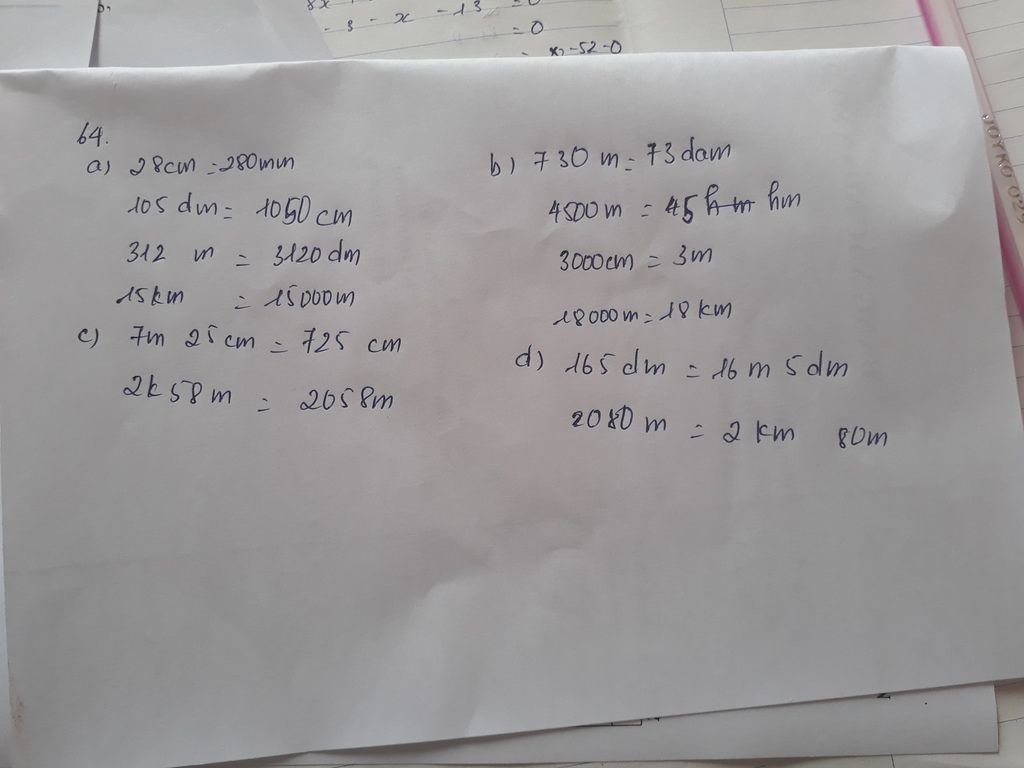 8x
- 3 - x - 13 = 0
= 0
= x - 52 - 0
64.
a) 28cm = 280mm
105 dm = 1050 cm
312 m = 3120 dm
15km = 15000m
c) 7m 25 cm = 725 cm
2k 58 m = 2058m
b) 730 m = 73 dam
4500 m = 45 hm hm
3000cm = 3m
18000m = 18 km
d) 165 dm = 16 m 5 dm
2080 m = 2 km 80m
JOYKO